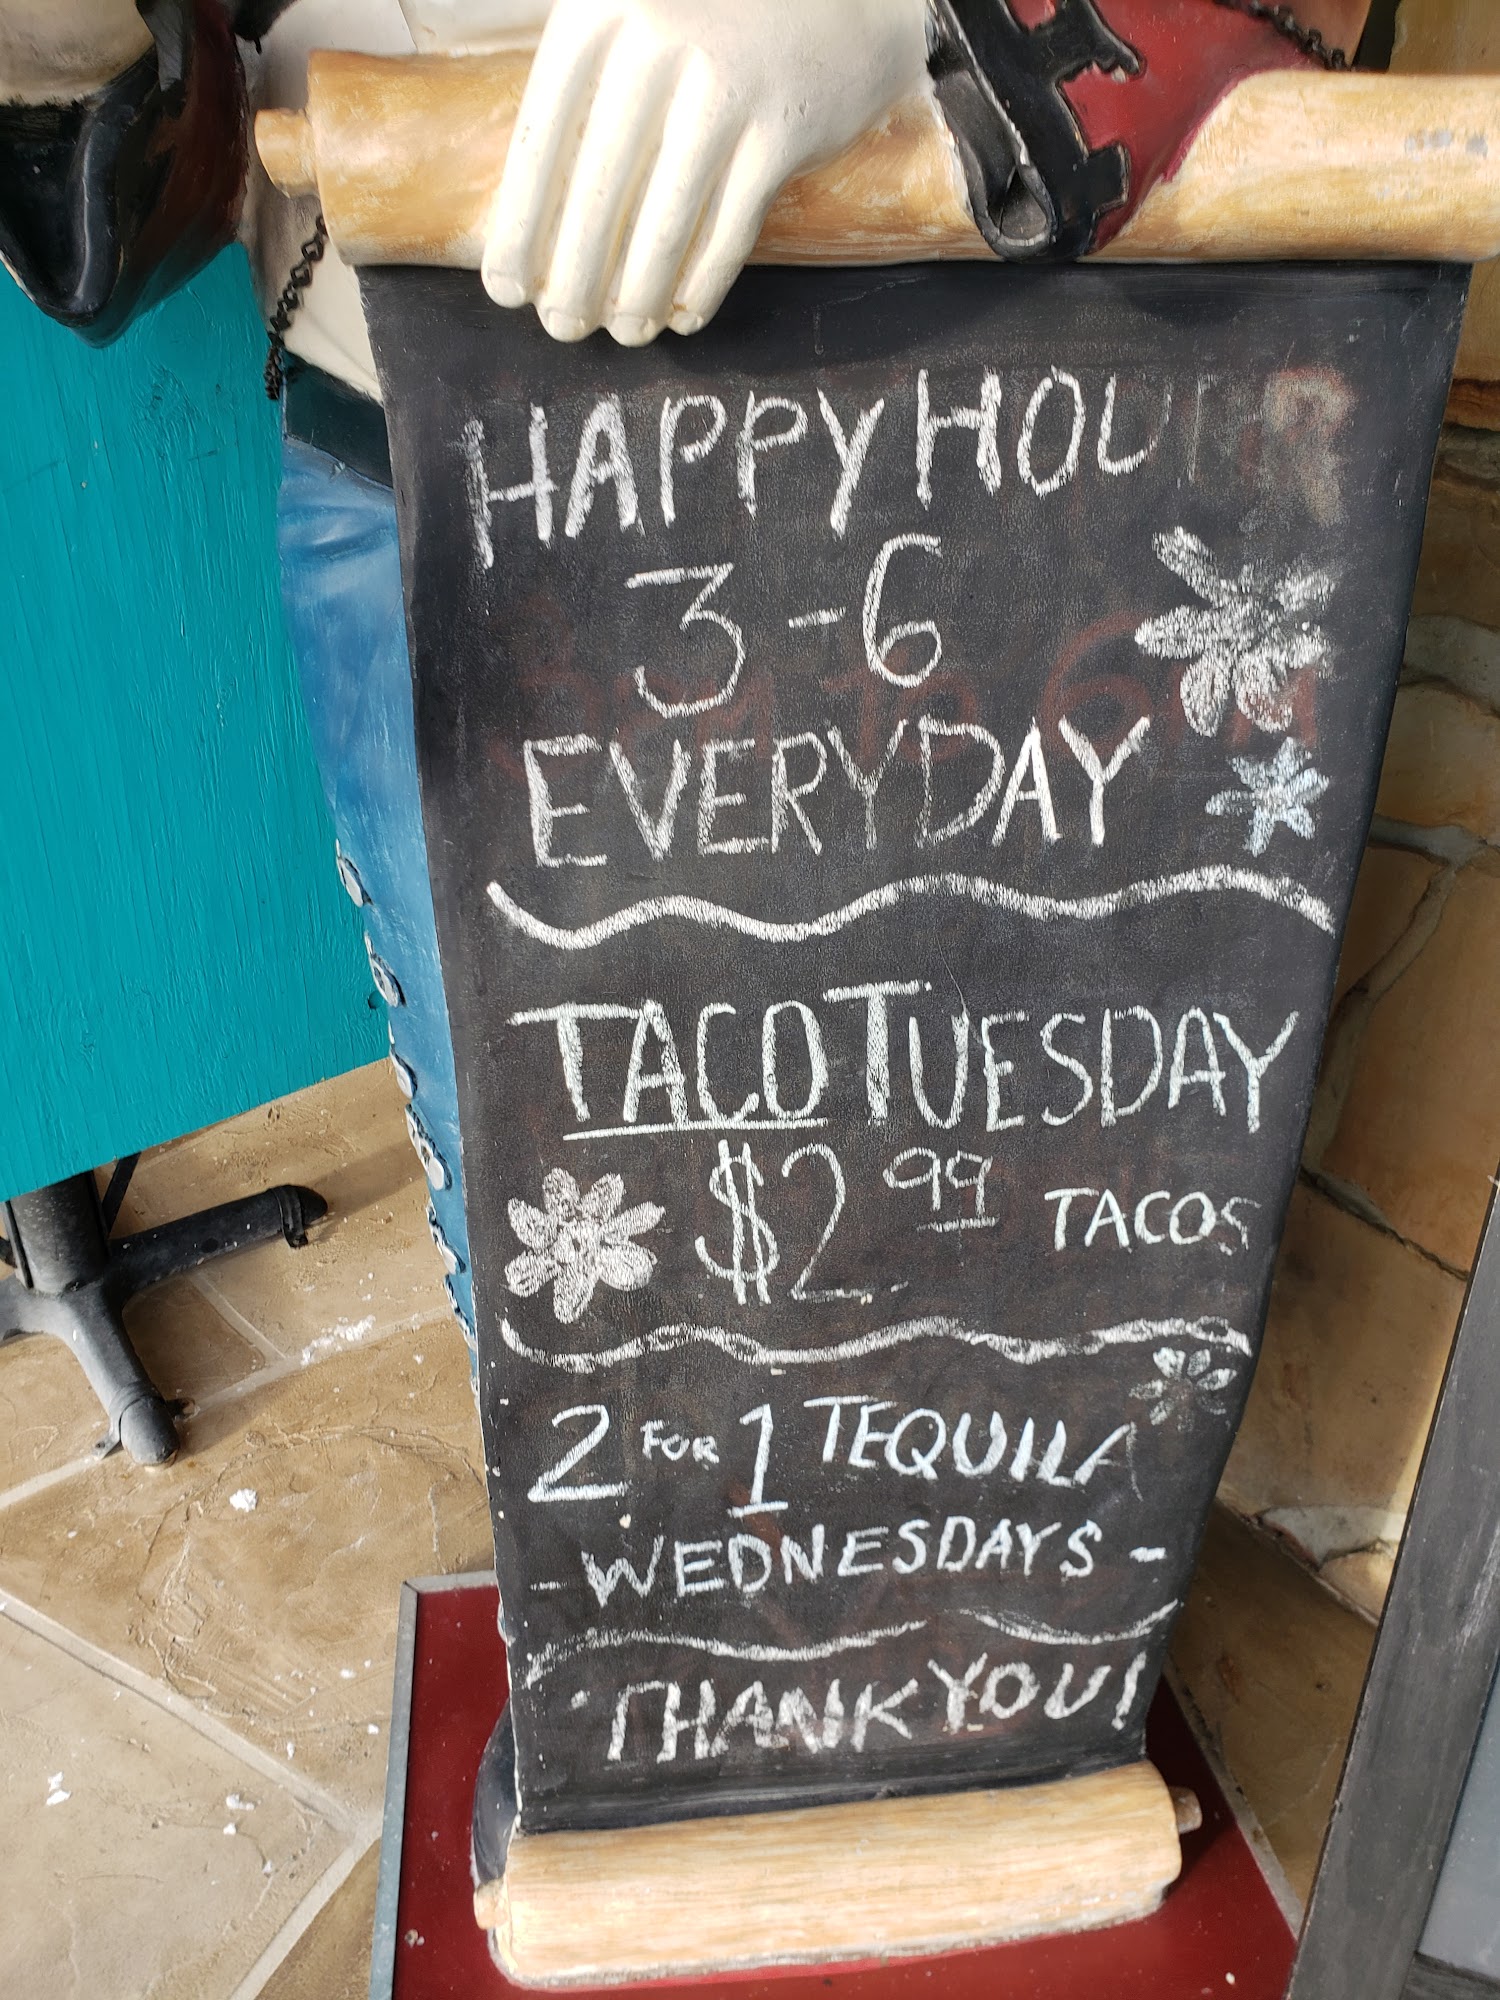 HAPPY HOUR
3-6
EVERYDAY
TACO TUESDAY
$2.99 TACOS
2 FOR 1 TEQUILA
- WEDNESDAYS -
THANK YOU!